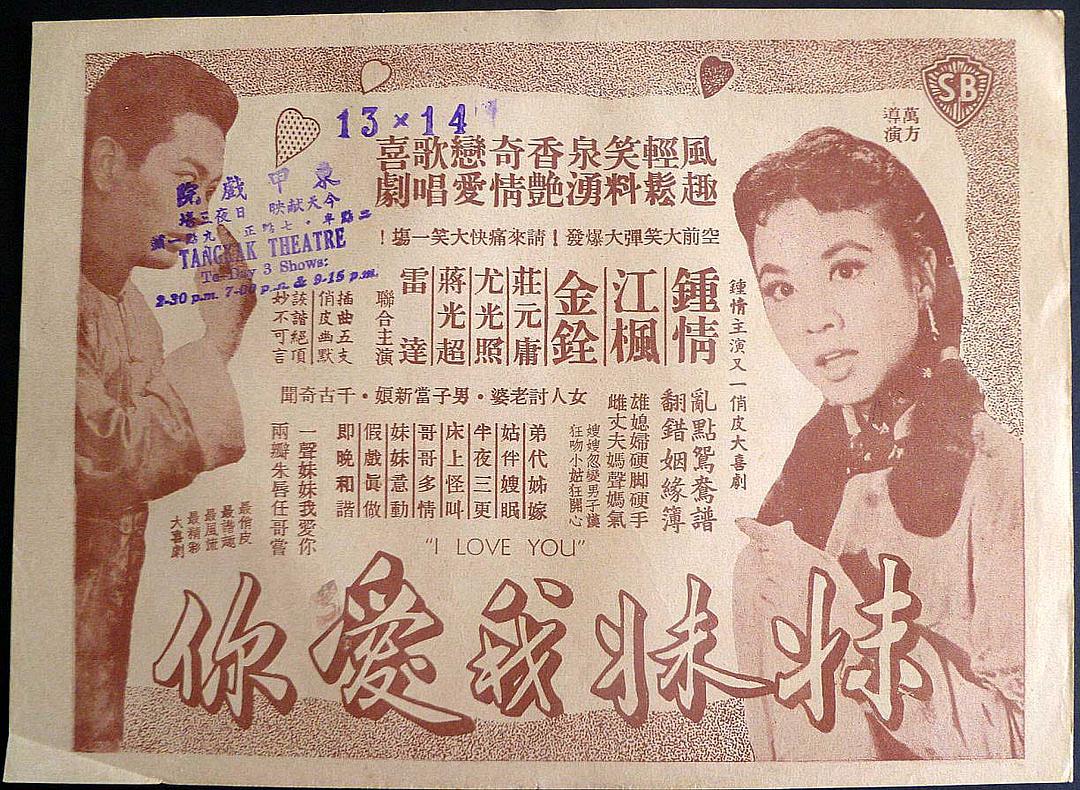 SB
萬方
導演
13 × 14
風趣
輕鬆
笑料
泉湧
香艷
奇情
戀愛
歌唱
喜劇
東甲戲院
今天献映 日夜三塲
TANGKAK THEATRE
To-Day 3 Shows:
2-30 p.m. 7-00 p.m. & 9-15 p.m.
空前大笑彈大爆發!請來痛快大笑一塲!
鍾情主演又一俏皮大喜劇
鍾情
江楓
金銓
莊元庸
尤光照
蔣光超
雷達
聯合主演
插曲五支
俏皮幽默
詼諧絕頂
妙不可言
女人討老婆・男子當新娘・千古奇聞
亂點鴛鴦譜
翻錯姻緣簿
雄媳婦硬脚硬手
雌丈夫媽聲媽氣
嫂嫂忽變男子漢
狂吻小姑狂開心
弟代姊嫁
姑伴嫂眠
半夜三更
床上怪叫
哥哥多情
妹妹意動
假戲眞做
即晚和諧
一聲妹妹我愛你
兩瓣朱唇任哥嘗
最俏皮
最諧趣
最風流
最精彩
大喜劇
"I LOVE YOU"
妹妹我愛你